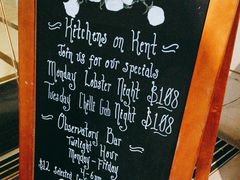 Kitchens on Kent
Join us for our specials
Monday Lobster Night $108
Tuesday Chilli Crab Night $108
Observatory Bar
Twilight Hour
Monday - Friday
4-6pm
$12 selected